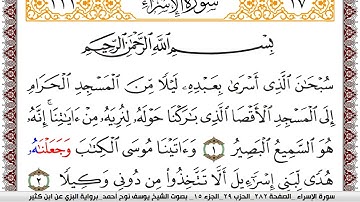 ١١١ سُورَةُ الإِسْرَاءِ ١٧
بِسْمِ اللَّهِ الرَّحْمَٰنِ الرَّحِيمِ
سُبْحَٰنَ الَّذِي أَسْرَىٰ بِعَبْدِهِ لَيْلًا مِّنَ الْمَسْجِدِ الْحَرَامِ
إِلَى الْمَسْجِدِ الْأَقْصَا الَّذِي بَٰرَكْنَا حَوْلَهُ لِنُرِيَهُ مِنْ ءَايَٰتِنَا إِنَّهُ
هُوَ السَّمِيعُ الْبَصِيرُ ١ وَءَاتَيْنَا مُوسَى الْكِتَٰبَ وَجَعَلْنَٰهُ
هُدًى لِّبَنِي إِسْرَٰٓءِيلَ أَلَّا تَتَّخِذُوا مِن دُونِي وَكِيلًا ٢
سورة الإسراء _ الصفحة ٢٨٢ _ الحزب ٢٩ _ الجزء ١٥ _ بصوت الشيخ يوسف نوح أحمد _ برواية البزي عن ابن كثير